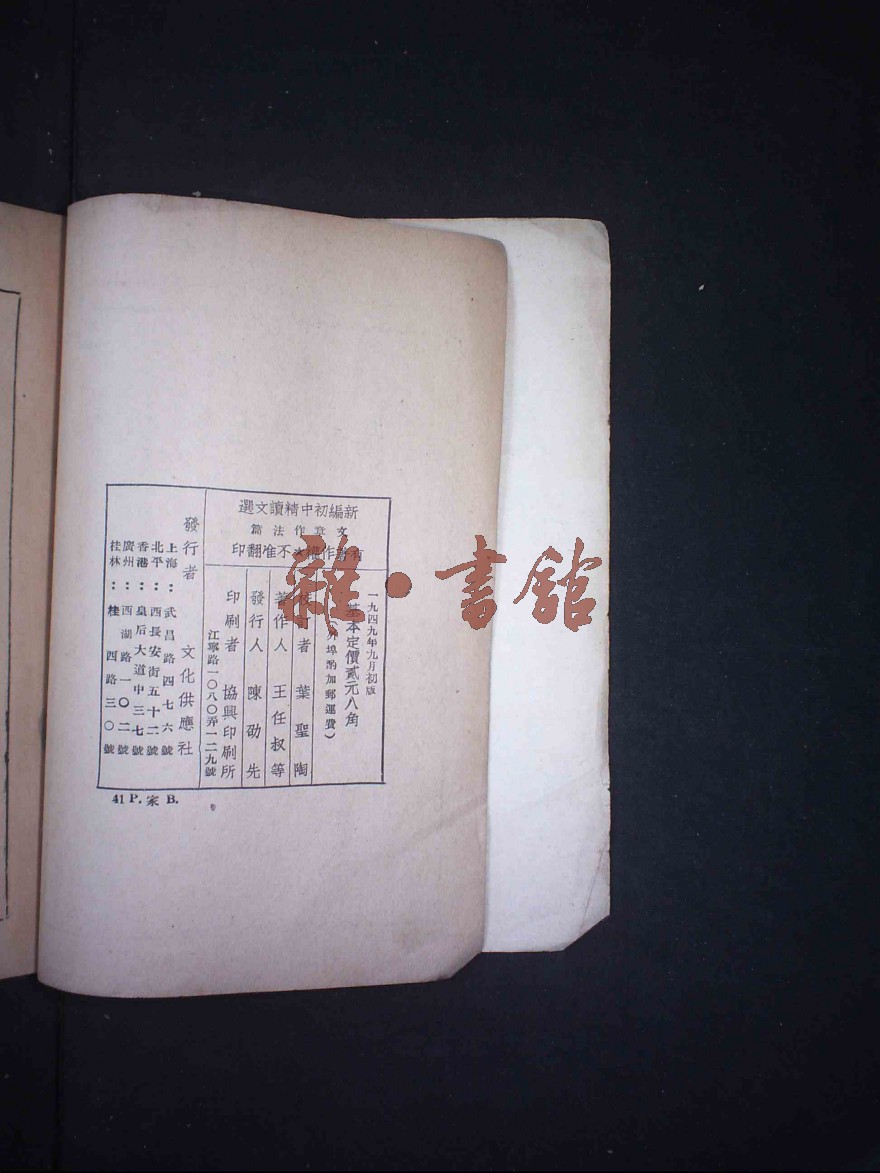 新編初中精讀文選
文章作法篇
有著作權★不准翻印
一九四九年九月初版
基本定價貳元八角
(外埠酌加郵運費)
校訂者 葉聖陶
著作人 王任叔等
發行人 陳劭先
印刷者 協興印刷所
江寧路一〇八〇弄一二九號
發行者 文化供應社
上海:武昌路四七六號
北平:西長安街五十二號
香港:皇后大道中三七號
廣州:西湖路一〇二號
桂林:桂西路三〇號
41 P. 家 B.
雜·書館